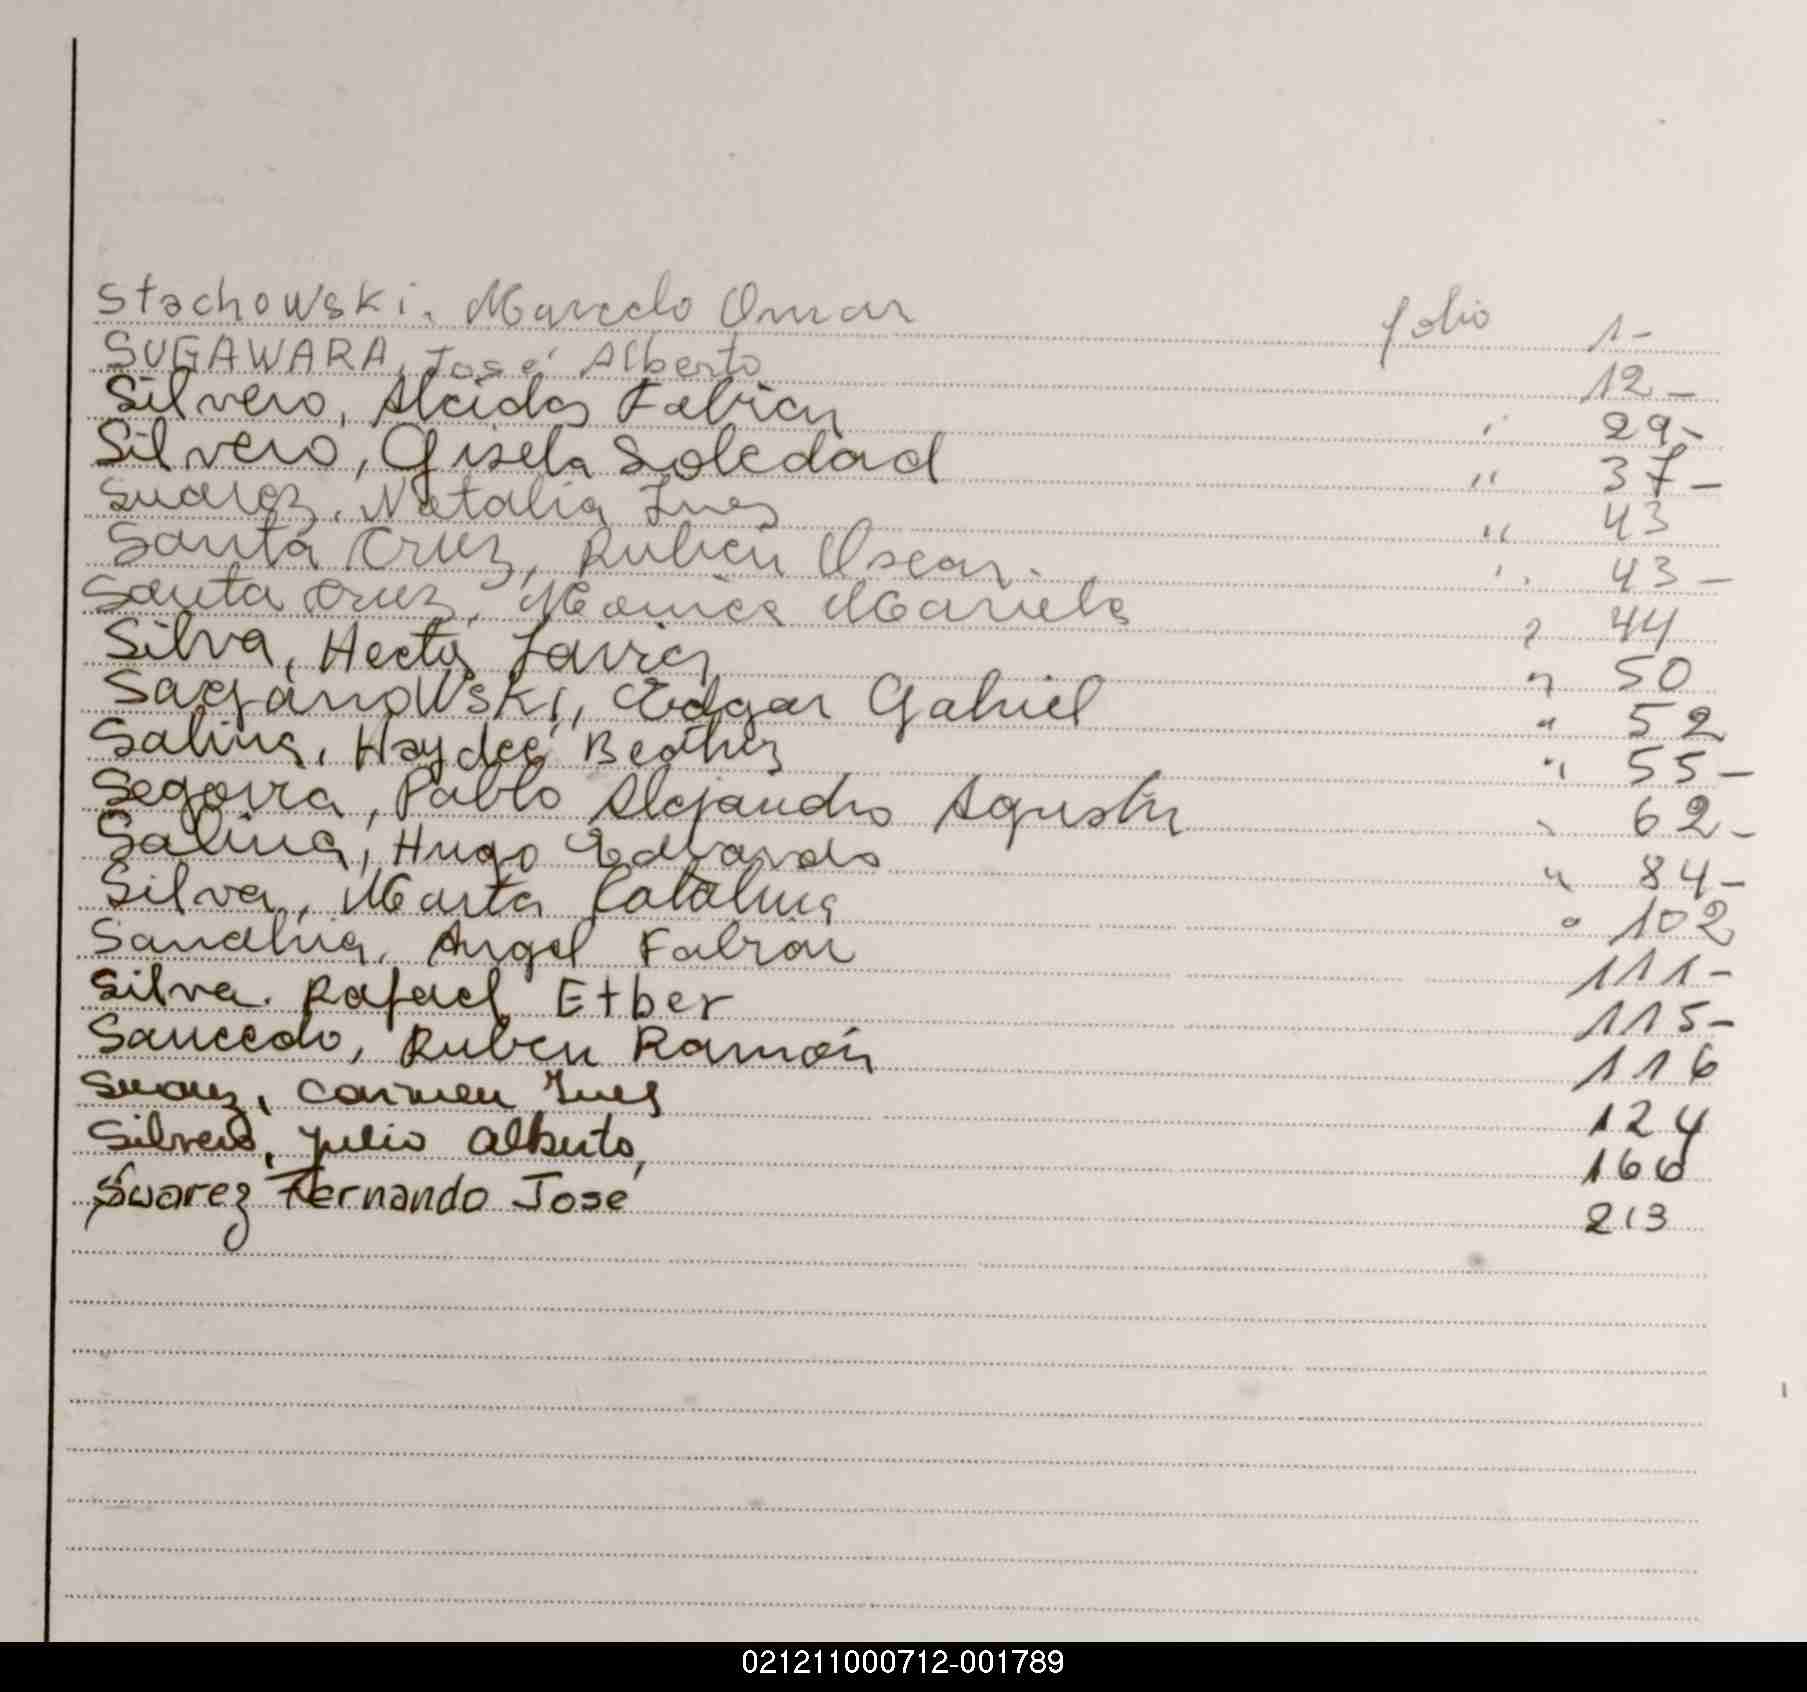 Stachowski, Marcelo Omar folio 1-
SUGAWARA, José Alberto 12-
Silvero, Alcides Fabian " 29-
Silvero, Gisela Soledad " 37-
Suarez, Natalia Ines " 43
Santa Cruz, Ruben Oscar. " 43-
Santa Cruz, Monica Mariela " 44
Silva, Hector Javier " 50
Saganowski, Edgar Gabriel " 52
Salina, Haydeé Beatriz " 55-
Segovia, Pablo Alejandro Agustin " 62-
Salina, Hugo Eduardo " 84-
Silva, Marta Catalina " 102
Sandria, Angel Fabian 111-
Silva. Rafael Etber 115-
Saucedo, Ruben Ramón 116
Suarez, Carmen Ines 124
Silvero, Julio Alberto, 166
Suarez Fernando José 213
021211000712-001789